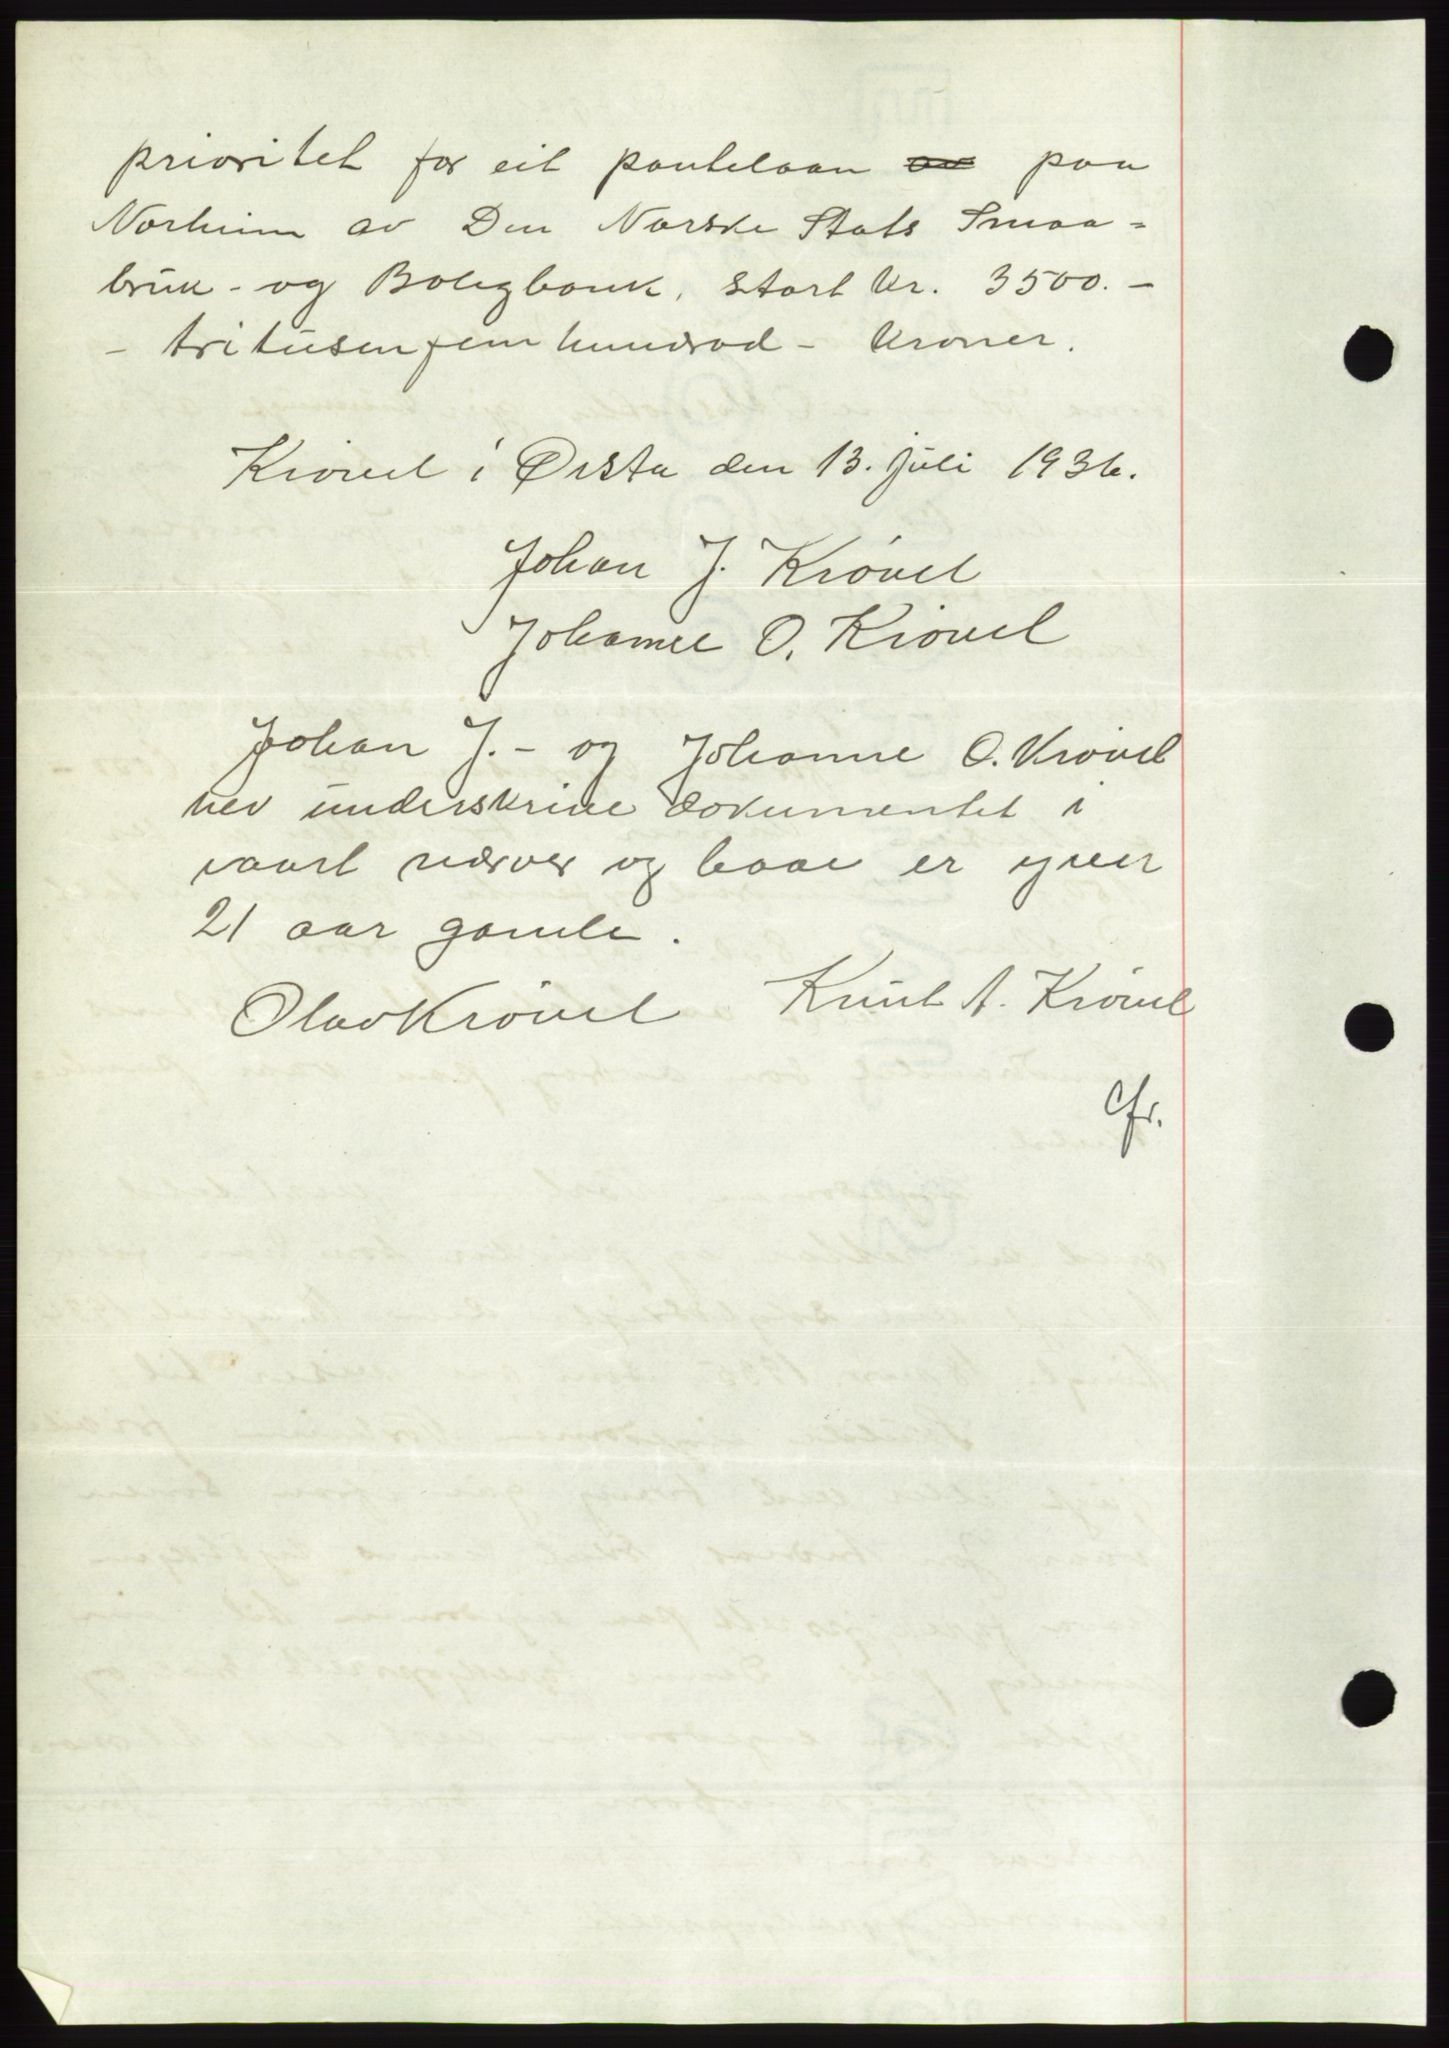 prioritet for eit pantelaan av paa
Norheim av Den Norske Stats Smaa=
bruk- og Boligbank, stort kr. 3500.-
- tritusenfemhundrad - kroner.
Krøvel i Ørsta den 13. juli 1936.
Johan J. Krøvel
Johanne O. Krøvel
Johan J. - og Johanne O. Krøvel
hev underskrive dokumentet i
vaart nærver og baae er yver
21 aar gamle.
Olav Krøvel Knut A. Krøvel
Cfr.